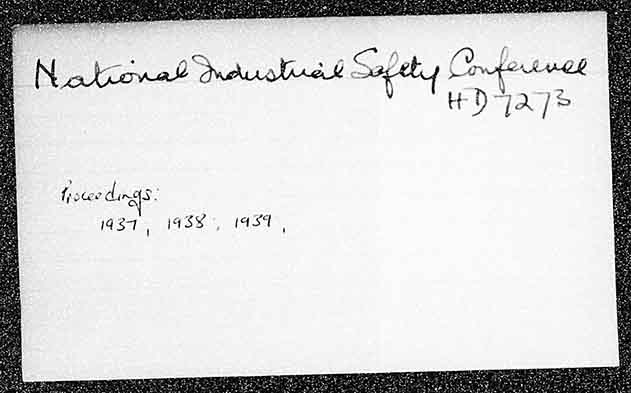 National Industrial Safety Conference
HD7273
Proceedings:
1937, 1938, 1939,